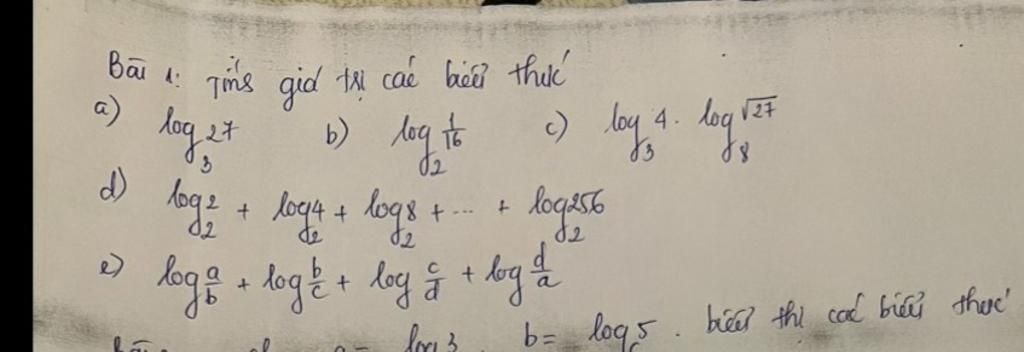 Bài 1: Tính giá trị các biểu thức
a) log₃ 27 b) log₂ 1/16 c) log₃ 4 . log₈ √27
d) log₂ 2 + log₂ 4 + log₂ 8 + ... + log₂ 256
e) log a/b + log b/c + log c/d + log d/a
log 3 b = log 5 . biểu thị các biểu thức